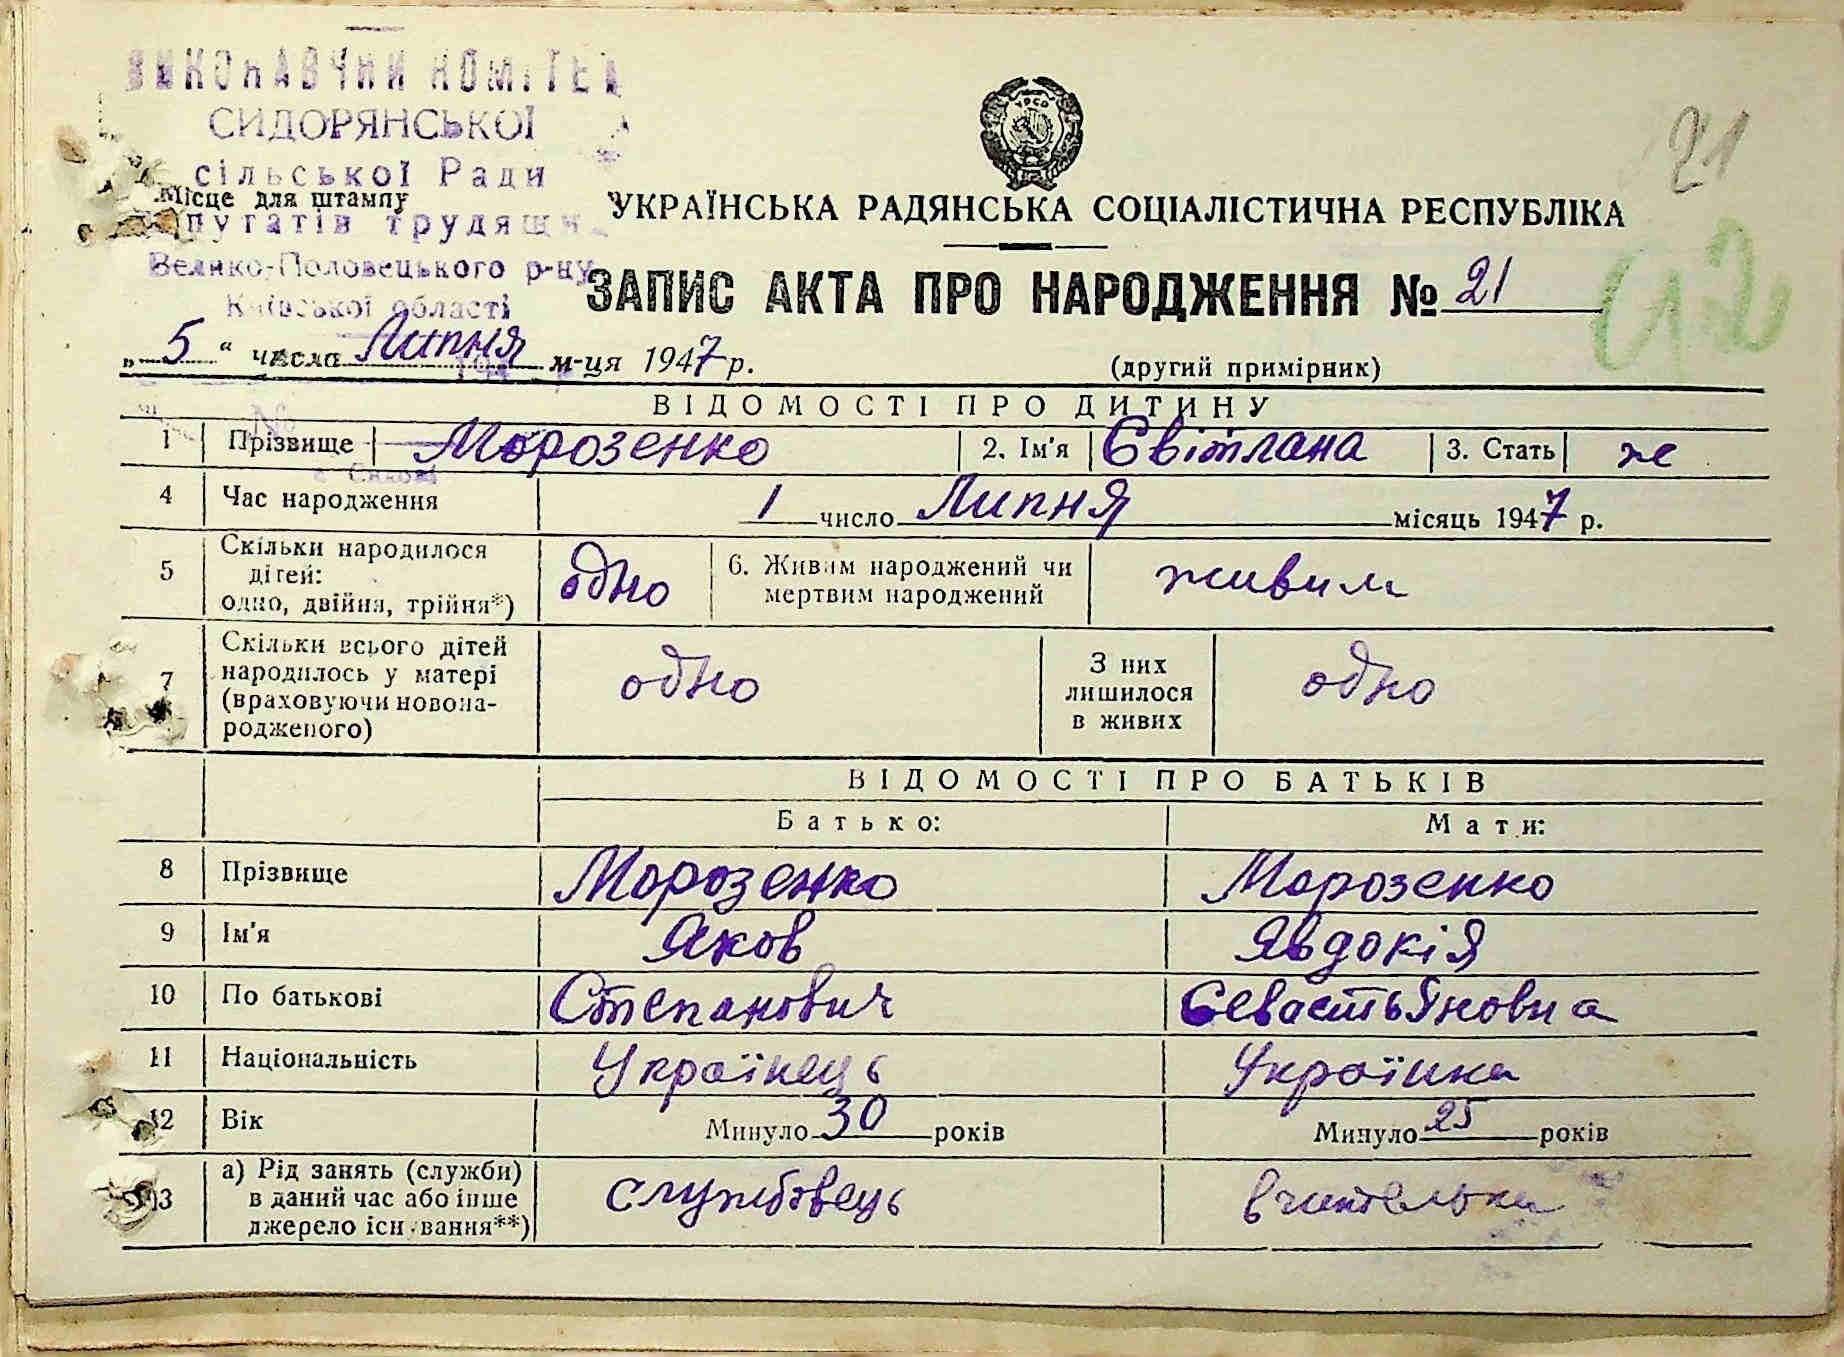 ВИКОНАВЧИЙ КОМІТЕТ
СИДОРЯНСЬКОЇ
сільської Ради
Місце для штампу
депутатів трудящих
Велико-Половецького р-ну
Київської області
УРСР
21
УКРАЇНСЬКА РАДЯНСЬКА СОЦІАЛІСТИЧНА РЕСПУБЛІКА
ЗАПИС АКТА ПРО НАРОДЖЕННЯ № 21
„5“ числа Липня м-ця 1947 р.
(другий примірник)
ВІДОМОСТІ ПРО ДИТИНУ
1 Прізвище Морозенко 2. Ім'я Світлана 3. Стать ж
4 Час народження 1 число Липня місяць 1947 р.
5 Скільки народилося дітей: одно, двійня, трійня*) одно 6. Живим народжений чи мертвим народжений живим
7 Скільки всього дітей народилось у матері (враховуючи новонародженого) одно З них лишилося в живих одно
ВІДОМОСТІ ПРО БАТЬКІВ
Батько: Мати:
8 Прізвище Морозенко Морозенко
9 Ім'я Яков Явдокія
10 По батькові Степанович Севастьяновна
11 Національність Українець Українка
12 Вік Минуло 30 років Минуло 25 років
13 а) Рід занять (служби) в даний час або інше джерело існування**) службовець вчителька